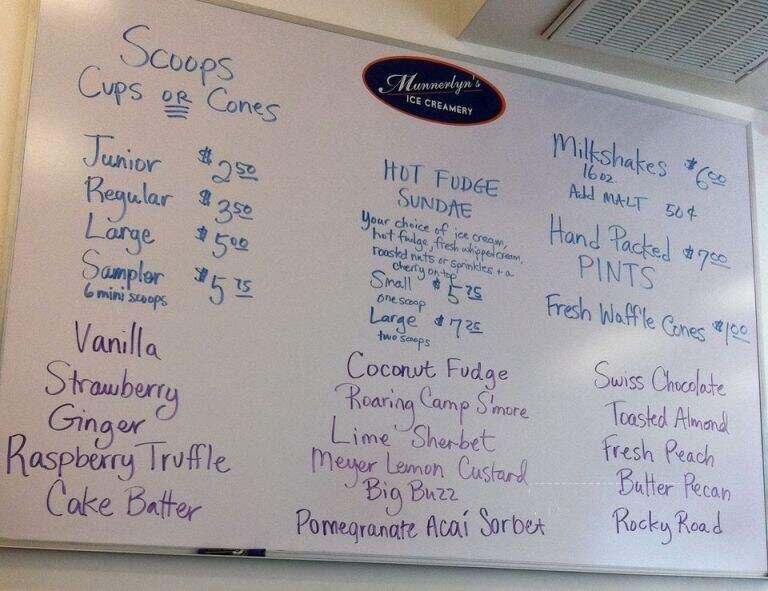 Scoops
Cups OR Cones
Junior $2.50
Regular $3.50
Large $5.00
Sampler $5.75
6 mini scoops
Munnerlyn's
ICE CREAMERY
HOT FUDGE
SUNDAE
Your choice of ice cream,
hot fudge, fresh whipped cream,
roasted nuts or sprinkles + a
cherry on top
Small $5.25
one scoop
Large $7.25
two scoops
Milkshakes $6.00
16oz.
Add MALT 50¢
Hand Packed $7.00
PINTS
Fresh Waffle Cones $1.00
Vanilla
Strawberry
Ginger
Raspberry Truffle
Cake Batter
Coconut Fudge
Roaring Camp S'more
Lime Sherbet
Meyer Lemon Custard
Big Buzz
Pomegranate Acaí Sorbet
Swiss Chocolate
Toasted Almond
Fresh Peach
Butter Pecan
Rocky Road